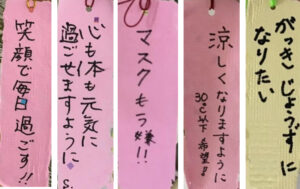 笑顔で毎日過ごす!!
心も体も元気に
過ごせますように。
S.
マスクもう嫌!!
涼しくなりますように
30℃以下希望!!
がっきじょうずに
なりたい